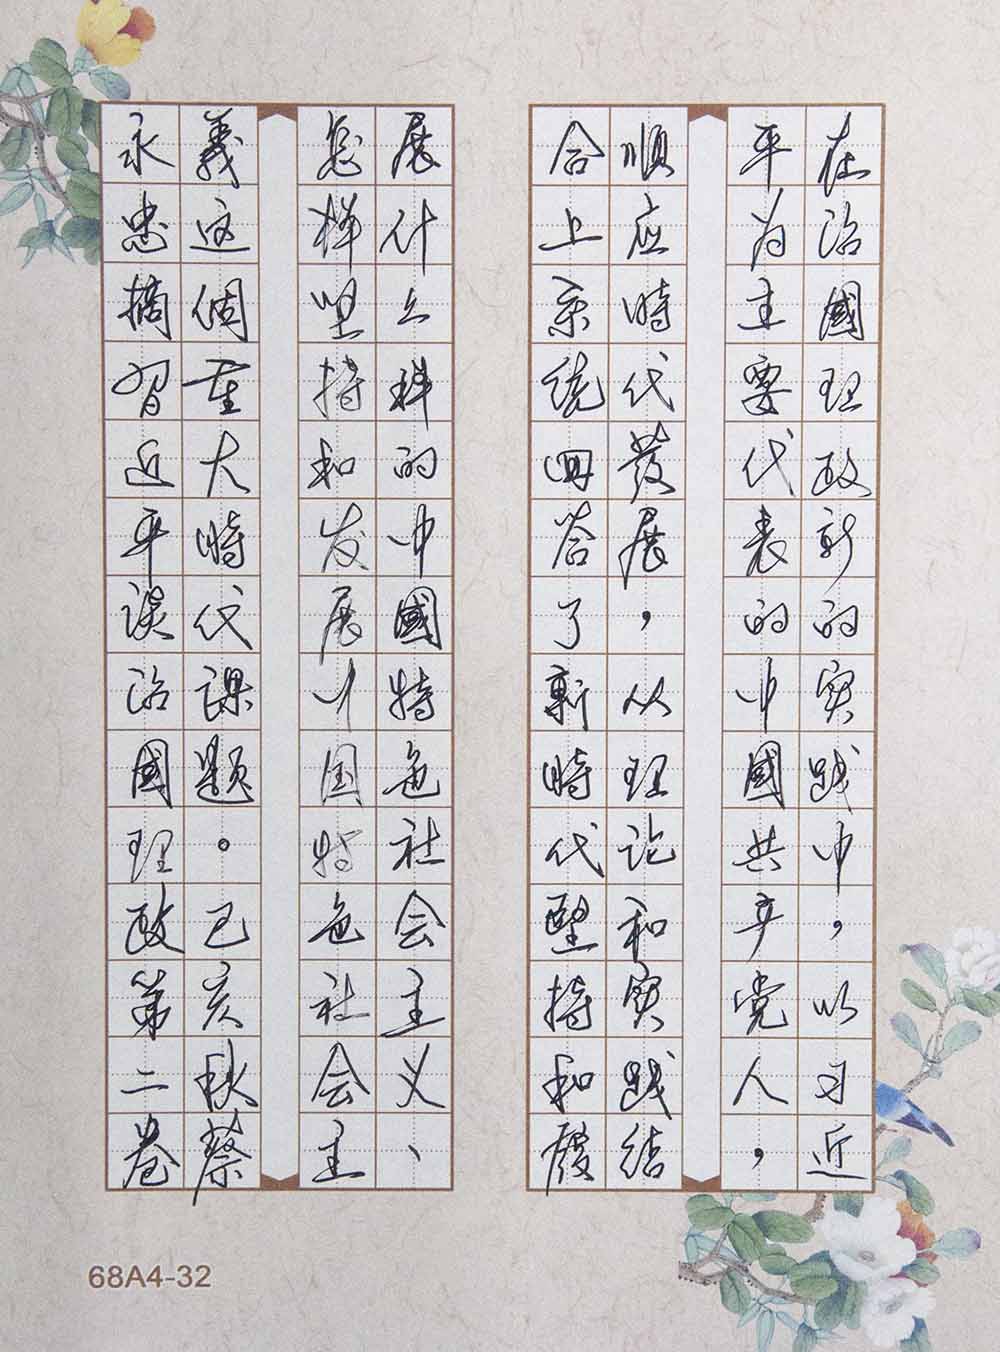 在治國理政新的實践中，以习近
平为主要代表的中國共产党人，
順应時代發展，从理论和實践结
合上系统回答了新時代堅持和發
展什么样的中國特色社会主义、
怎样坚持和发展中国特色社会主
義这個重大時代课题。己亥秋蔡
永忠摘習近平谈治國理政第二卷
68A4-32